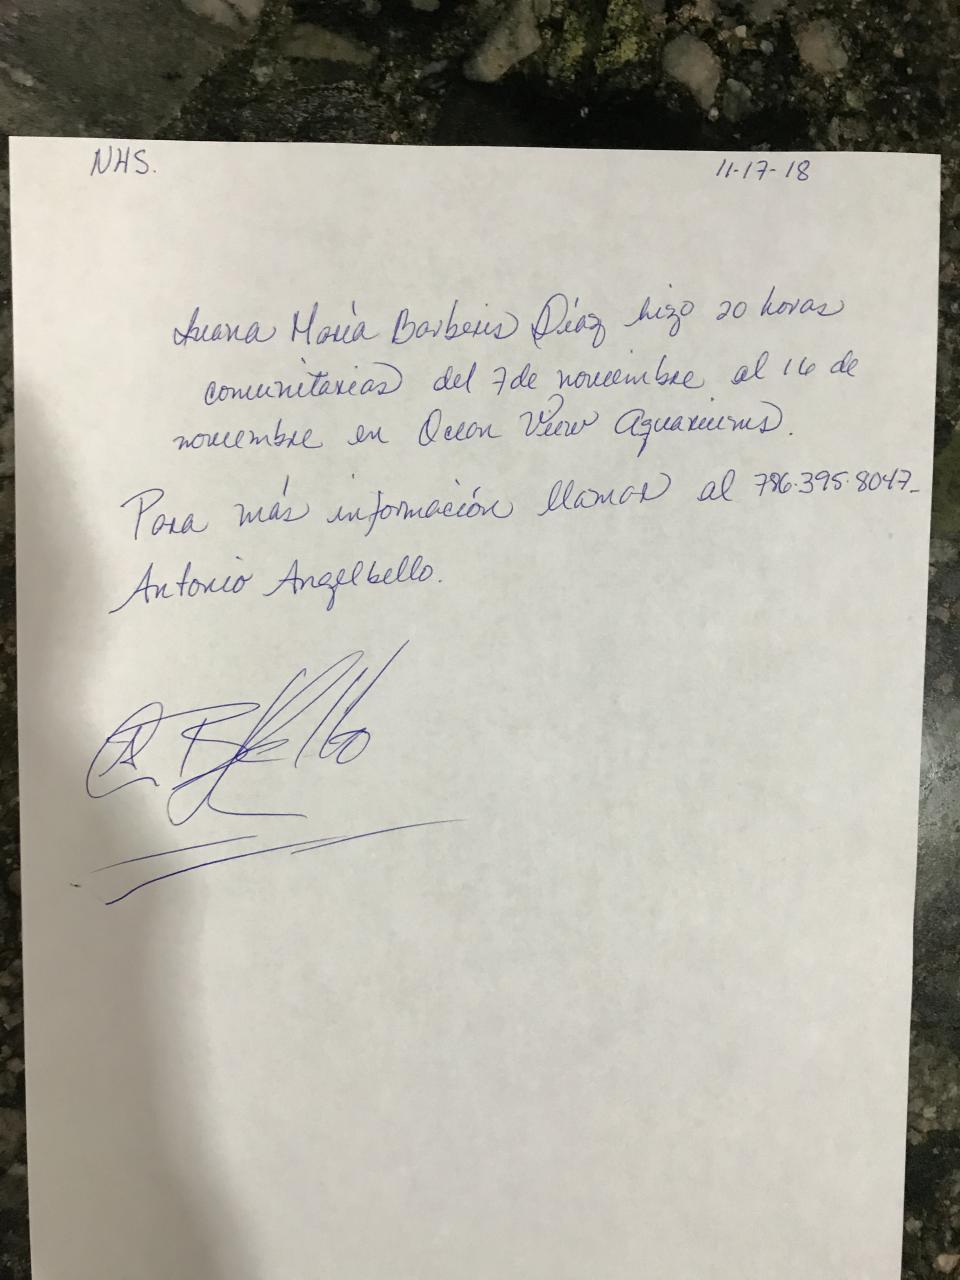 NHS.
11-17-18
Juana María Barberis Díaz hizo 20 horas
comunitarias del 7 de noviembre al 16 de
noviembre en Ocean View Aquariums.
Para más información llamar al 786.395.8047_
Antonio Angelbello.